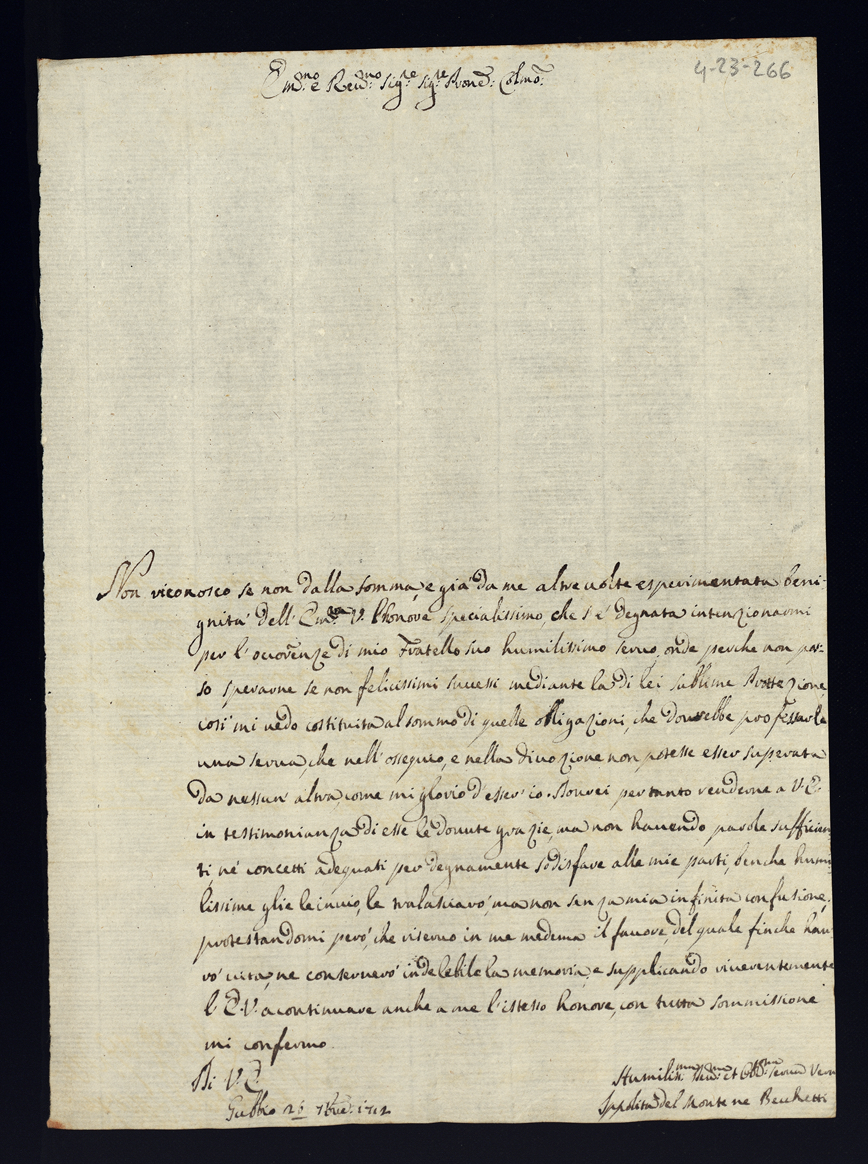 4-23-266
Em.mo e Reu.mo Sig.re Sig.re Prone Col.mo
Non riconosco se non dalla somma, e già da me altre uolte esperimentata beni-
gnità dell' Em.za V. l'honore specialissimo, che s'è degnata intenzionarmi
per l'occorenze di mio Fratello suo humilissimo seruo, onde perche non pos-
so sperarne se non felicissimi successi mediante la di lei sublime Protezione,
così mi uedo costituita al sommo di quelle obligazioni, che dourebbe professarle
una serua, che nell'ossequio, e nella diuozione non potesse esser superata
da nessun' altra come mi glorio d'esser' io. Dourei per tanto renderne a V.E.
in testimonianza di esse le douute grazie, ma non hauendo parole sufficien
ti nè concetti adequati per degnamente sodisfare alle mie parti, benche humi
lissime glie le inuio, le tralasciarò, ma non senza mia infinita confusione,
protestandomi però, che riseruo in me medema il fauore, del quale finche hau
rò uita, ne conseruerò indelebile la memoria, e supplicando riuerentemente
l'E.V. a continuare anche a me l'istesso honore, con tutta sommissione
mi confermo.
Di V.E.
Gubbio 26 1712
Humiliss.ma Deu.ma et Obl.ma Serua Vera
Ippolita del Monte ne Becchetti